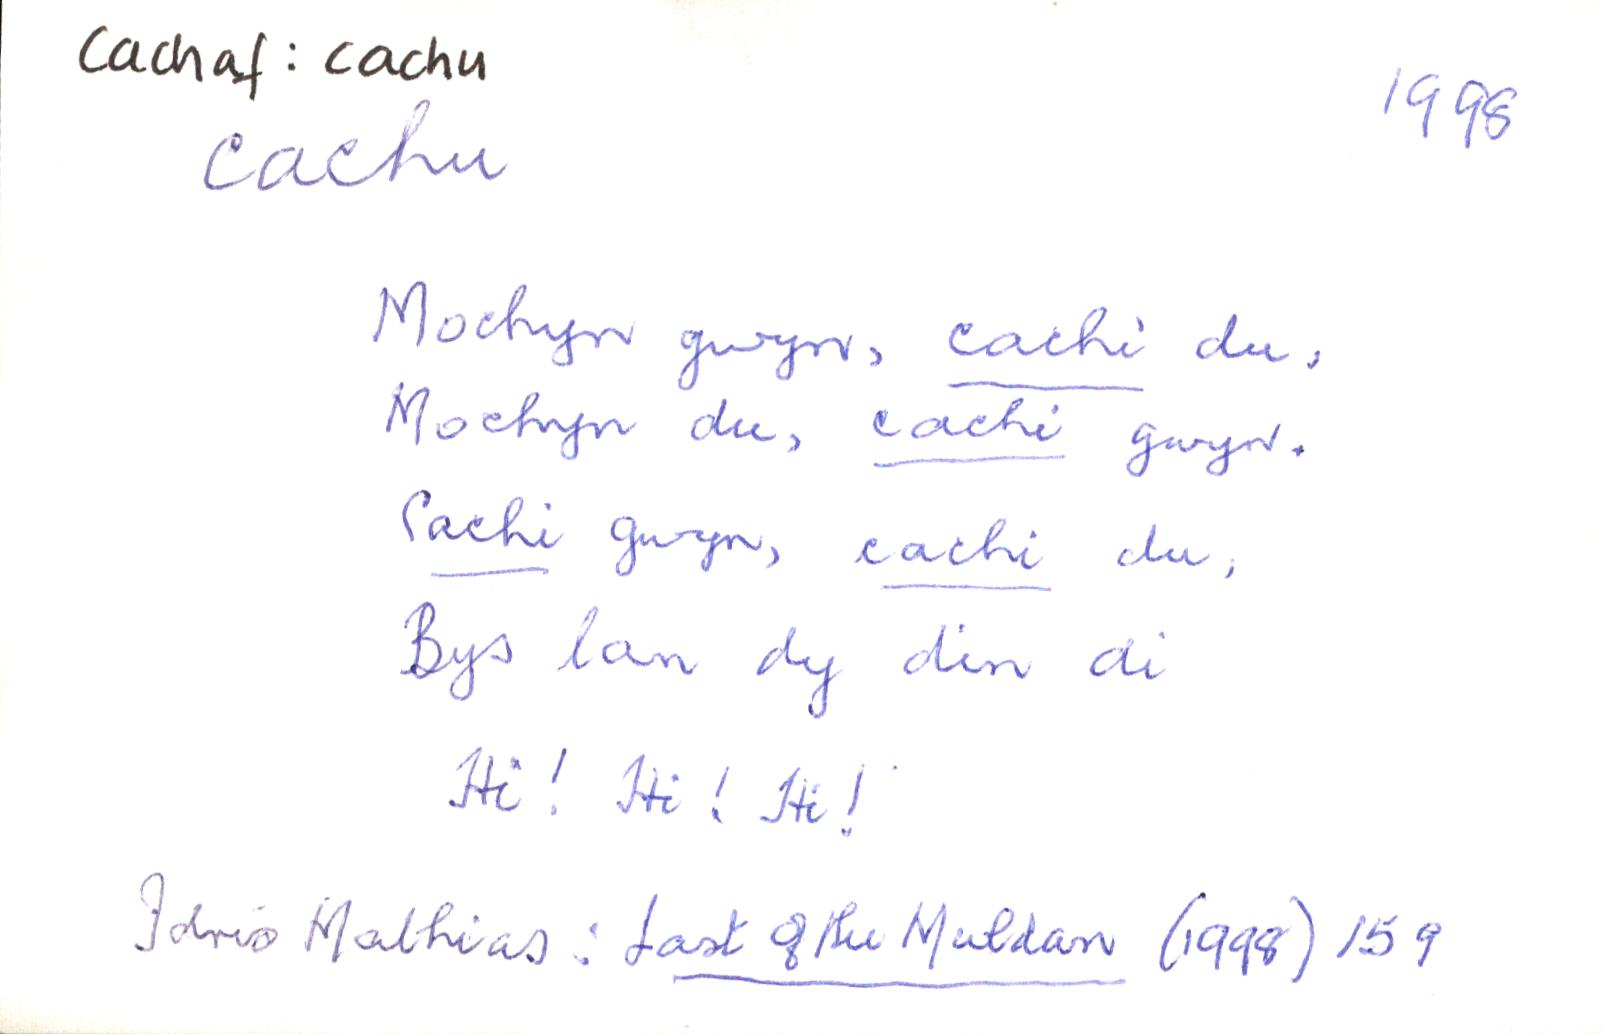 Cachaf: cachu
1998
cachu
Mochyn gwyn, cachi du,
Mochyn du, cachi gwyn.
Cachi gwyn, cachi du,
Bys lan dy din di
Hi! Hi! Hi!
Idris Mathias: Last of the Muldan (1998) 159